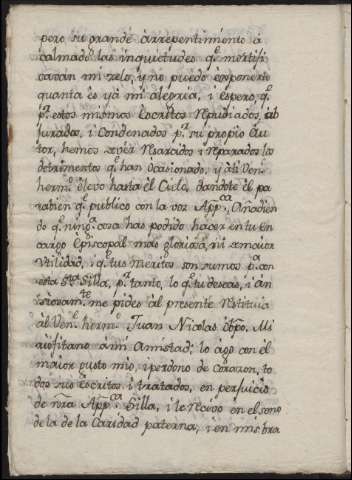 pero su grande arrepentimiento á
calmado las inquietudes q.e mortifi
cavan mi zelo, y no puedo exponerte
quanta és yá mi alegria, i espero, q.e
p.r estos mismos Escritos repudiados, ab
jurados, i Condenados p.r su propio Au
tor, hemos de ver resarcidos i reparados los
detrimentos q.e han òcasionado, y à ti Ven.e
herm.o èlevo hasta èl Cielo, dandote èl pa
rabien q.e publico con la voz App.ca Añadien
do q.e ning.a cosa has podido hacer en tu en
cargo Episcopal mas gloriosa, ni de maior
Vtilidad, i q.e tus meritos son sumos p.a con
esta S.ta Silla, p.r tanto, lo q.e tu deseas, i àn
siosam.te me pides al presente restituia
al Ven.e herm.o Juan Nicolas Obpo. Mi
riofitano à mi Amistad; lo ago con èl
maior gusto mio, i perdono de Corazon, to
dos sus Escritos i tratados, en perjuicio
de nra App.ca Silla, i le recivo en el seno
de la de la Caridad paterna, i en nuestra